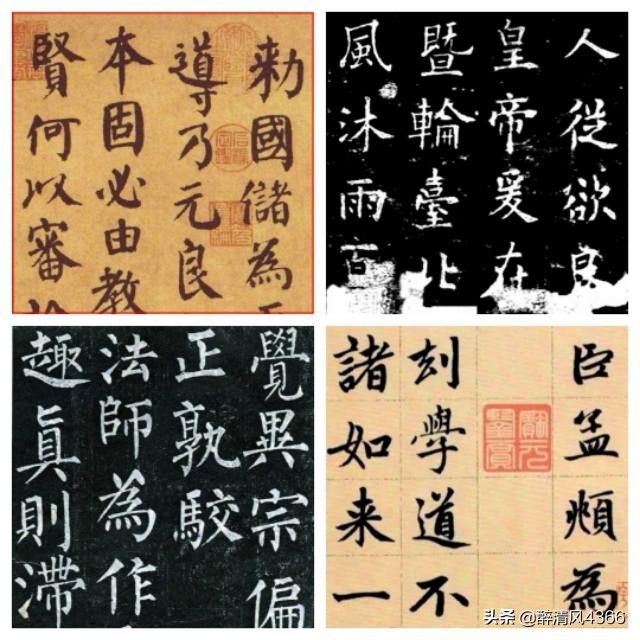 勅國儲為
導乃元良
本固必由教
賢何以審
人從欲良
皇帝爰在
暨輪臺北
風沐雨百
覺異宗偏
正孰駮
法師為作
趣真則滯
臣孟頫為
刻學道不
諸如来一
头条 @醉清风4366